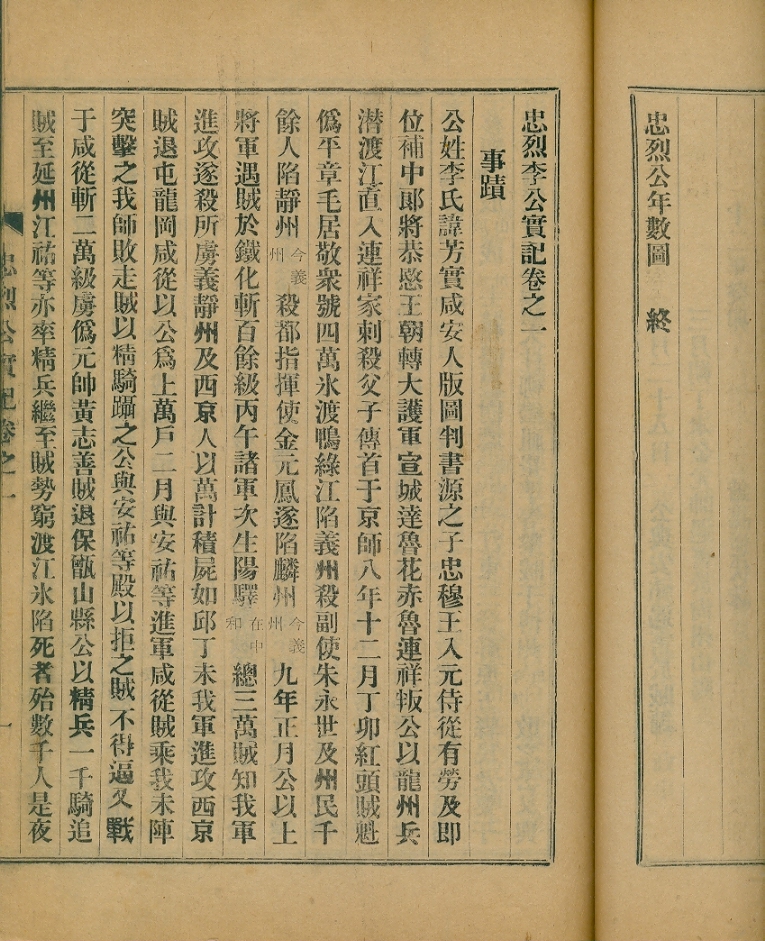 忠烈公年數圖 終
忠烈李公實記卷之一
事蹟
公姓李氏諱芳實咸安人版圖判書源之子忠穆王入元侍從有勞及即
位補中郞將恭愍王朝轉大護軍宣城達魯花赤魯連祥叛公以龍州兵
潜渡江直入連祥家刺殺父子傳首于京師八年十二月丁卯紅頭賊魁
僞平章毛居敬衆號四萬氷渡鴨綠江陷義州殺副使朱永世及州民千
餘人陷靜州今義州殺都指揮使金元鳳遂陷麟州今義州九年正月公以上
將軍遇賊於鐵化斬百餘級丙午諸軍次生陽驛在中和總三萬賊知我軍
進攻遂殺所虜義靜州及西京人以萬計積屍如邱丁未我軍進攻西京
賊退屯龍岡咸從以公爲上萬戶二月與安祐等進軍咸從賊乘我未陣
突擊之我師敗走賊以精騎躡之公與安祐等殿以拒之賊不得逼又戰
于咸從斬二萬級虜僞元帥黃志善賊退保甑山縣公以精兵一千騎追
賊至延州江祐等亦率精兵繼至賊勢窮渡江氷陷死者殆數千人是夜
忠烈公實記卷之一
一